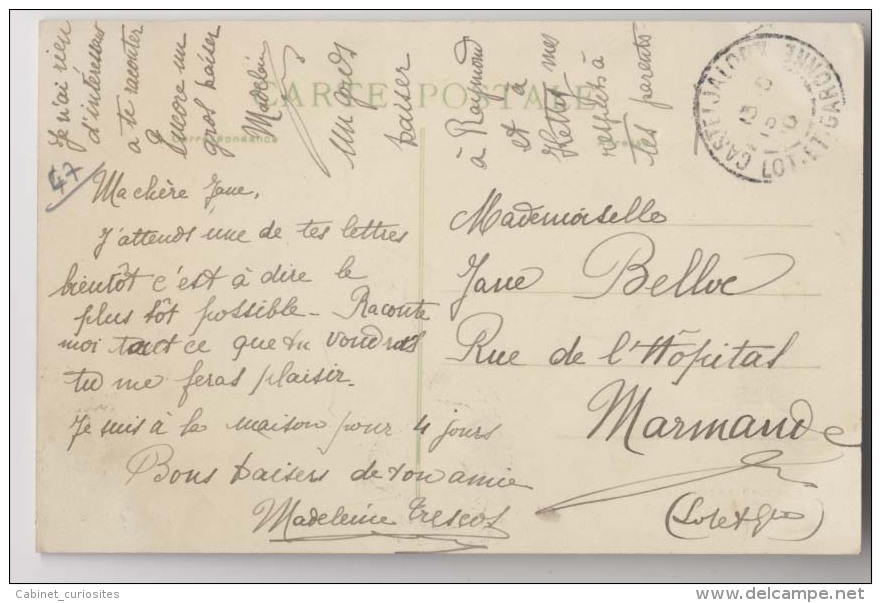 Je n'ai rien
d'intéressant
a te raconter
Encore un
gros baiser
Madelein
un gros
baiser
à Raymond
et à
Ketty mes
respects à
tes parents.
CARTE POSTALE
Correspondance
CASTELJALOUX
LOT-ET-GARONNE
47
Ma chère Jane,
J'attends une de tes lettres
bientôt c'est à dire le
plus tôt possible - Raconte
moi tout ce que tu voudras
tu me feras plaisir.
Je suis à la maison pour 4 jours
Bons baisers de ton amie
Madeleine Trescos
Mademoiselle
Jane Belloc
Rue de l'Hôpital
Marmande
(Lot et Gne)
Cabinet_curiosites
www.delcampe.net